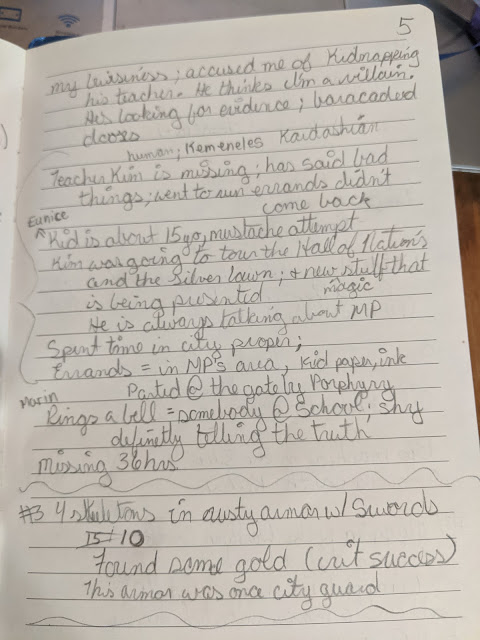 5
my buisiness; accused me of Kidnapping
his teacher. He thinks I'm a villain.
His looking for evidence; baracaded
doors
human; Kemeneles Kardashian
Teacher Kim is missing; has said bad
things; went to run errands didn't
come back
Eunice
Kid is about 15yo, mustache attempt
Kim was going to tour the Hall of Nation's
and the Silver lawn; + new stuff that
is being presented magic
He is always talking about MP
Spent time in city proper;
Errands = in MP's area, Kid paper, ink
Parted @ the gate by Porphyry
Marin
Rings a bell = somebody @ School; shy
definetly telling the truth
Missing 36hrs
#3 4 skeletons in rusty armor w/ Swords
15+10
Found some gold (crit success)
This armor was once city guard